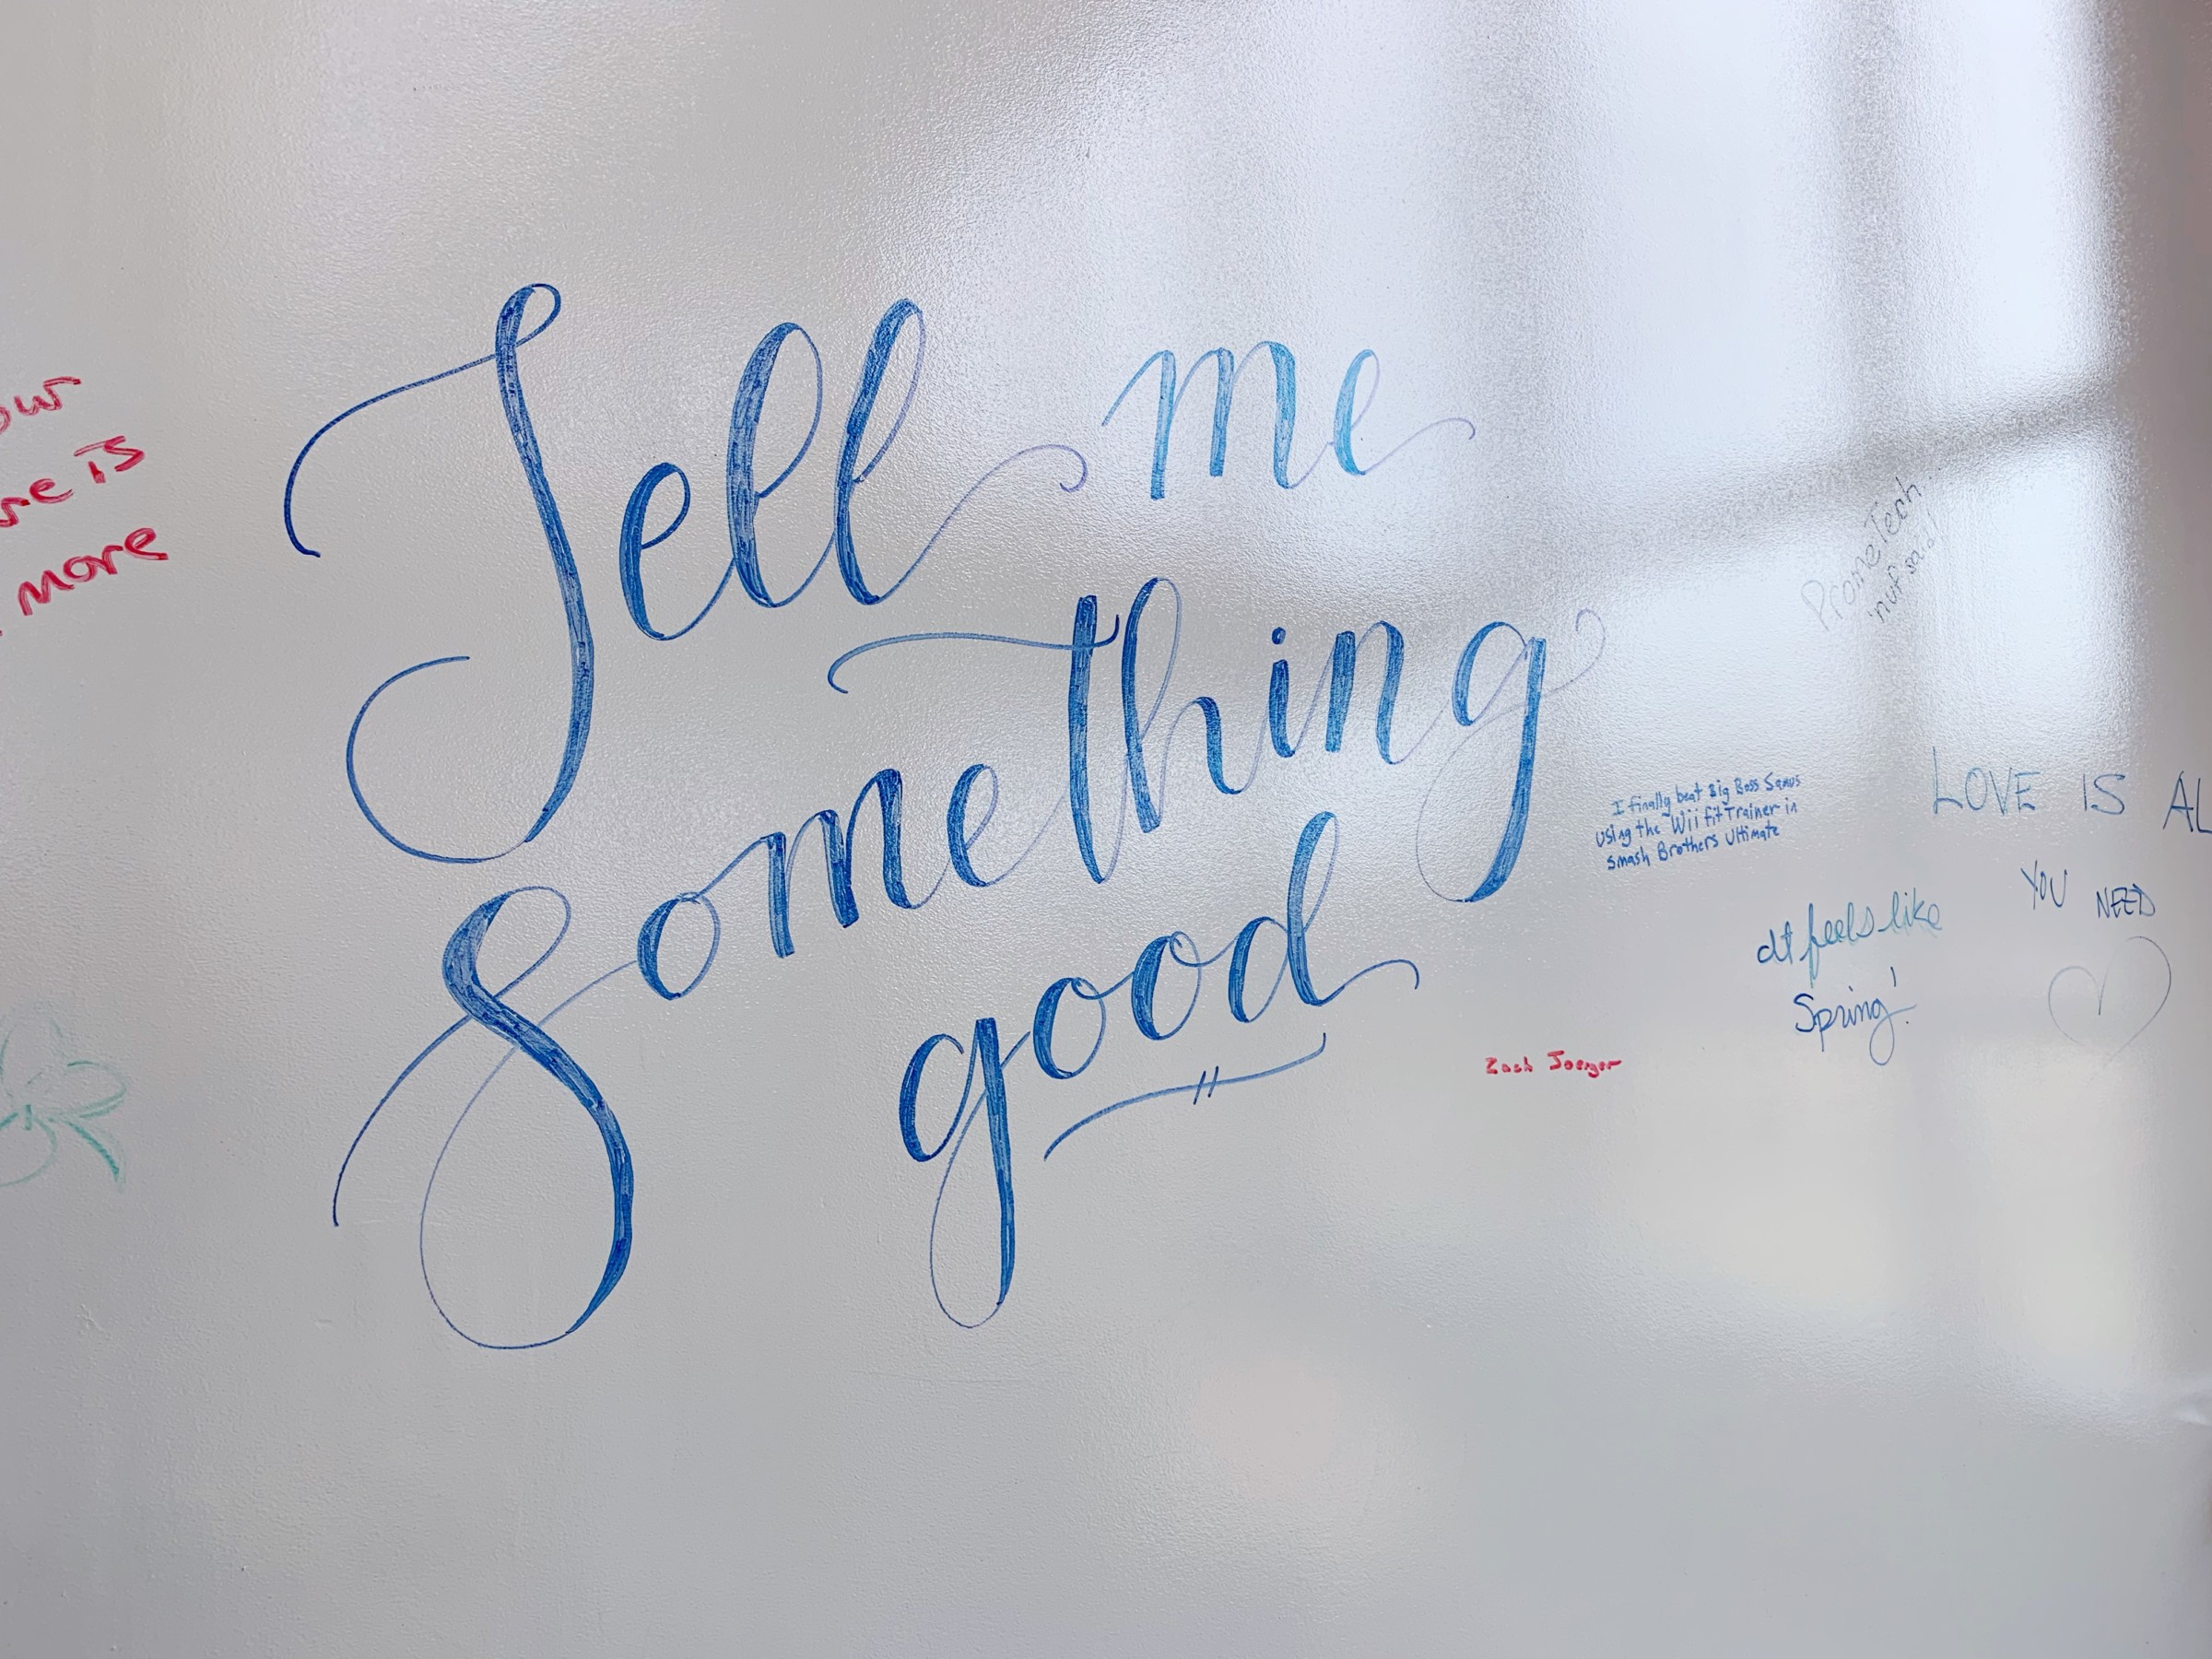 Tell me
something
good
more
PromeTech
'nuf said!
I finally beat Big Boss Samus
using the Wii fit Trainer in
Smash Brothers Ultimate
LOVE IS AL
YOU NEED
It feels like
Spring!
Zach Joerger
is